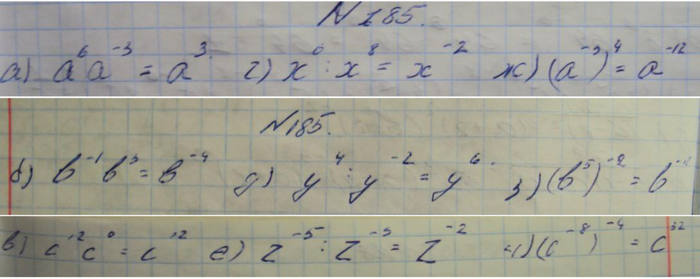 N 185.
а) a⁶a⁻³ = a³. г) x⁶ : x⁸ = x⁻² ж) (a⁻³)⁴ = a⁻¹²
N 185.
б) b⁻¹ b³ = b⁻⁴ д) y⁴ : y⁻² = y⁶. з) (b⁵)⁻² = b
в) c¹² c⁰ = c¹² е) z⁻⁵ : z⁻³ = z⁻² и) (c⁻⁸)⁻⁴ = c³²